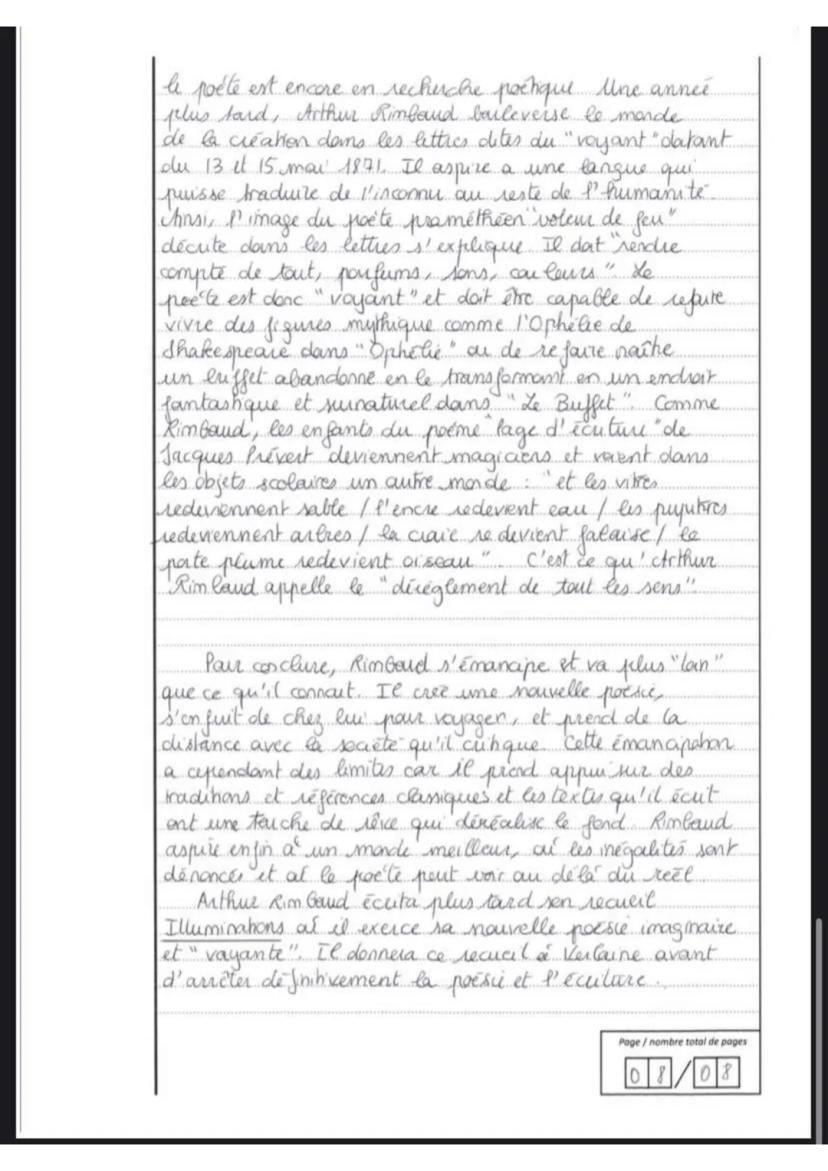 le poète est encore en recherche poétique Une année
plus tard, Arthur Rimbaud bouleverse le monde
de la création dans les lettres dites du "voyant" datant
du 13 et 15 mai 1871. Il aspire a une langue qui
puisse traduire de l'inconnu au reste de l'humanité.
Ainsi, l'image du poète prométhéen "voleur de feu"
décrite dans les lettres s'explique Il doit "rendre
compte de tout, parfums, sons, couleurs" Le
poète est donc "voyant" et doit être capable de refaire
vivre des figures mythique comme l'Ophélie de
Shakespeare dans "Ophélie" ou de refaire naître
un buffet abandonné en le transformant en un endroit
fantastique et surnaturel dans "Le Buffet". Comme
Rimbaud, les enfants du poème "Page d'écriture" de
Jacques Prévert deviennent magiciens et voient dans
les objets scolaires un autre monde : "et les vitres
redeviennent sable / l'encre redevient eau / les pupitres
redeviennent arbres / la craie redevient falaise / le
porte plume redevient oiseau". C'est ce qu'Arthur
Rimbaud appelle le "dérèglement de tout les sens".
Pour conclure, Rimbaud s'émancipe et va plus "loin"
que ce qu'il connait. Il crée une nouvelle poésie,
s'enfuit de chez lui pour voyager, et prend de la
distance avec la société qu'il critique. Cette émancipation
a cependant des limites car il prend appui sur des
traditions et références classiques et les textes qu'il écrit
ont une touche de rêve qui déréalise le fond. Rimbaud
aspire enfin à un monde meilleur, où les inégalités sont
dénoncés et où le poète peut voir au delà du reel.
Arthur Rimbaud écrita plus tard son recueil
Illuminations où il exerce sa nouvelle poésie imaginaire
et "voyante". Il donnera ce recueil à Verlaine avant
d'arrêter définitivement la poésie et l'écriture.
Page / nombre total de pages
08/08